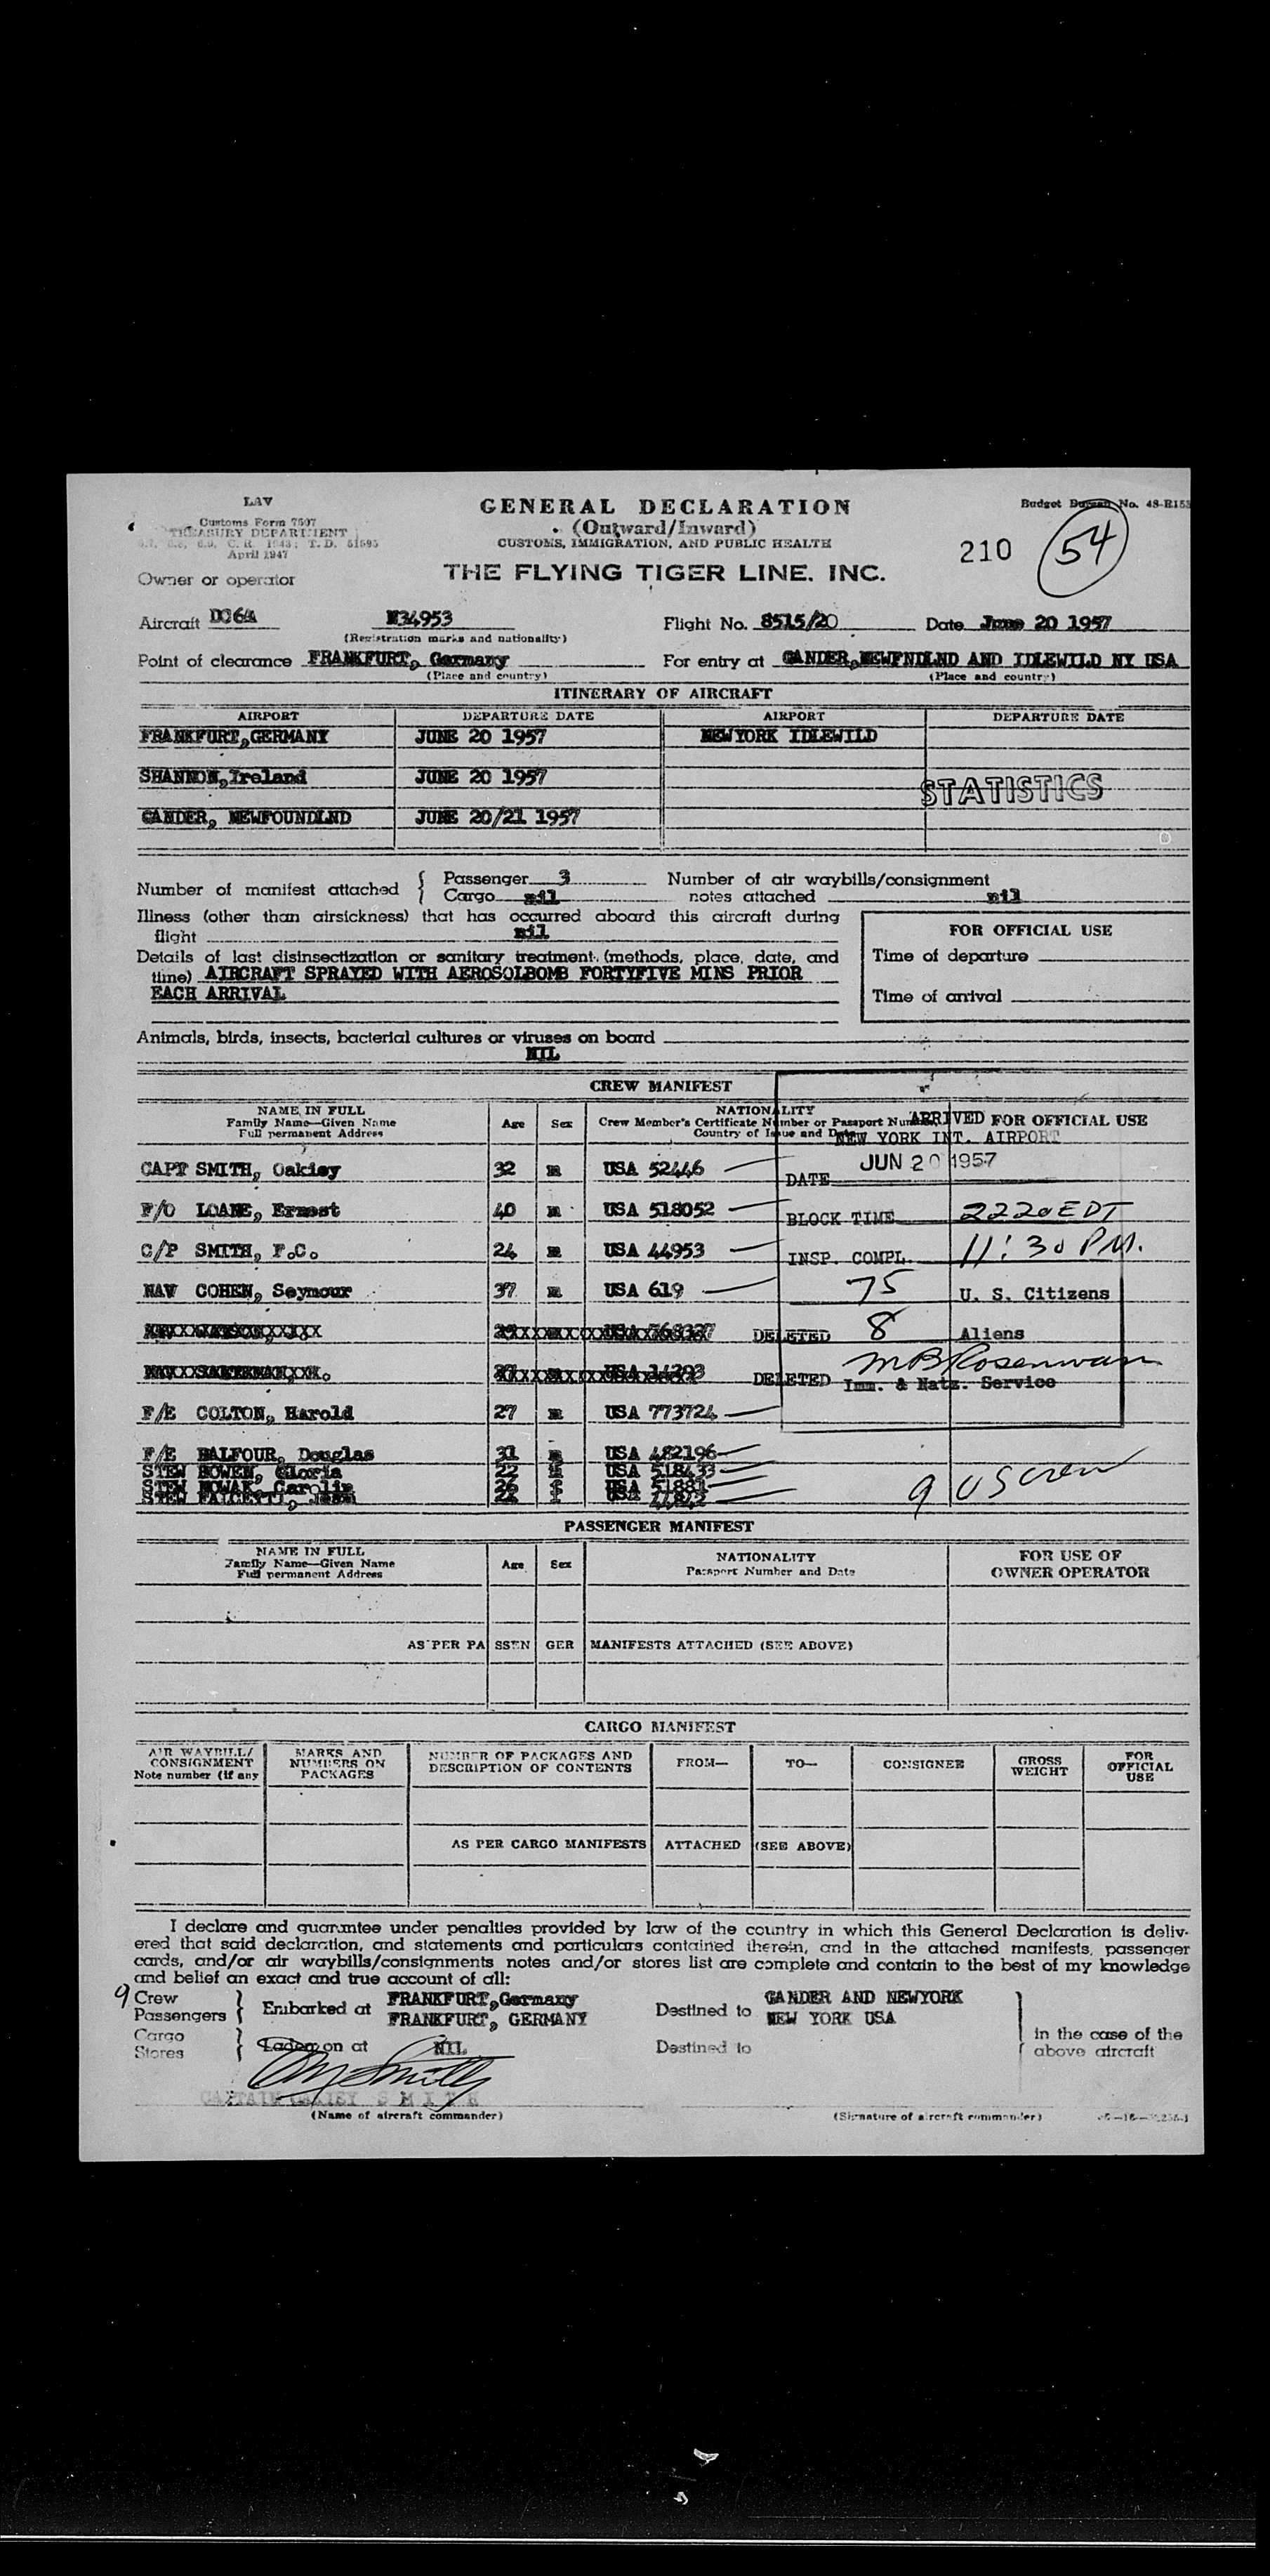 LAV
Customs Form 7507
TREASURY DEPARTMENT
C. R. 1943; T. D. 51595
April 1947
GENERAL DECLARATION
(Outward/Inward)
CUSTOMS, IMMIGRATION, AND PUBLIC HEALTH
Budget Bureau No. 48-R153
210 54
Owner or operator
THE FLYING TIGER LINE, INC.
Aircraft DC6A N34953 Flight No. 8515/20 Date June 20 1957
(Registration marks and nationality)
Point of clearance FRANKFURT, Germany For entry at GANDER,NEWFNDLND AND IDLEWILD NY USA
(Place and country) (Place and country)
ITINERARY OF AIRCRAFT
AIRPORT DEPARTURE DATE AIRPORT DEPARTURE DATE
FRANKFURT,GERMANY JUNE 20 1957 NEWYORK IDLEWILD
SHANNON,Ireland JUNE 20 1957
STATISTICS
GANDER, NEWFOUNDLND JUNE 20/21 1957
Number of manifest attached { Passenger 3 Number of air waybills/consignment
Cargo nil notes attached nil
Illness (other than airsickness) that has occurred aboard this aircraft during
flight nil
FOR OFFICIAL USE
Details of last disinsectization or sanitary treatment. (methods, place, date, and
time) AIRCRAFT SPRAYED WITH AEROSOLBOMB FORTYFIVE MINS PRIOR
EACH ARRIVAL
Time of departure
Time of arrival
Animals, birds, insects, bacterial cultures or viruses on board
NIL
CREW MANIFEST
NAME IN FULL
Family Name—Given Name
Full permanent Address
Age Sex
NATIONALITY
Crew Member's Certificate Number or Passport Number,
Country of Issue and Date
FOR OFFICIAL USE
ARRIVED
NEW YORK INT. AIRPORT
CAPT SMITH, Oakley 32 m USA 52446 DATE JUN 20 1957
F/O LOANE, Ernest 40 m USA 518052 BLOCK TIME 2220 EDT
C/P SMITH, F.C. 24 m USA 44953 INSP. COMPL. 11:30 P.M.
NAV COHEN, Seymour 37 m USA 619 75 U. S. Citizens
DELETED 8 Aliens
MB Rosenman
DELETED Imm. & Natz. Service
F/E COLTON, Harold 27 m USA 773724
F/E BALFOUR, Douglas 31 m USA 482196
STEW BOWEN, Gloria 22 f USA 518433
STEW NOWAK, Carolin 26 f USA 51881
STEW f USA
9 US Crew
PASSENGER MANIFEST
NAME IN FULL
Family Name—Given Name
Full permanent Address
Age Sex
NATIONALITY
Passport Number and Date
FOR USE OF
OWNER OPERATOR
AS PER PASSENGER MANIFESTS ATTACHED (SEE ABOVE)
CARGO MANIFEST
AIR WAYBILL/
CONSIGNMENT
Note number (if any
MARKS AND
NUMBERS ON
PACKAGES
NUMBER OF PACKAGES AND
DESCRIPTION OF CONTENTS
FROM— TO— CONSIGNEE
GROSS
WEIGHT
FOR
OFFICIAL
USE
AS PER CARGO MANIFESTS ATTACHED (SEE ABOVE)
I declare and guarantee under penalties provided by law of the country in which this General Declaration is deliv-
ered that said declaration, and statements and particulars contained therein, and in the attached manifests, passenger
cards, and/or air waybills/consignments notes and/or stores list are complete and contain to the best of my knowledge
and belief an exact and true account of all:
9 Crew } Embarked at FRANKFURT,Germany Destined to GANDER AND NEWYORK
Passengers FRANKFURT, GERMANY NEW YORK USA
Cargo } Laden on at NIL Destined to
Stores
in the case of the
above aircraft
CAPTAIN OAKLEY SMITH
(Name of aircraft commander) (Signature of aircraft commander)